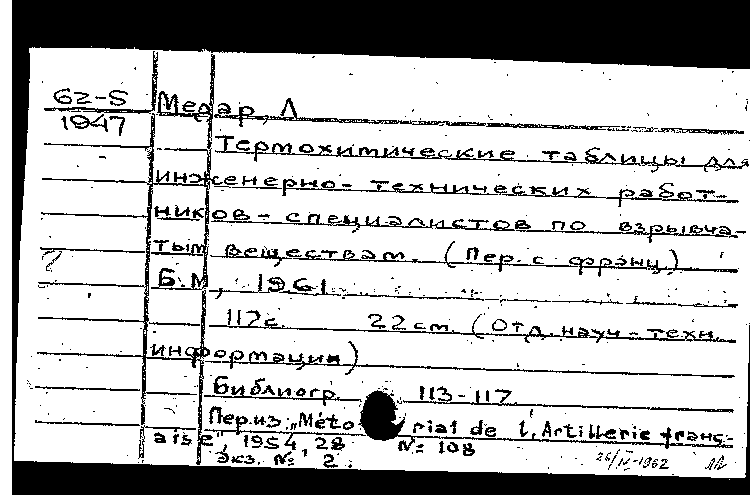 62-S
1947
Медар, Л
Термохимические таблицы для
инженерно-технических работ-
ников-специалистов по взрывча-
тым веществам. (Пер. с франц.)
Б.М, 1961.
117с. 22см. (Отд. науч-техн.
информации)
Библиогр. 113-117
Пер.из: „Méto rial de l,Artillerie franç-
aise", 1954, 28, № 108
Экз. № 2.
26/IV-1962